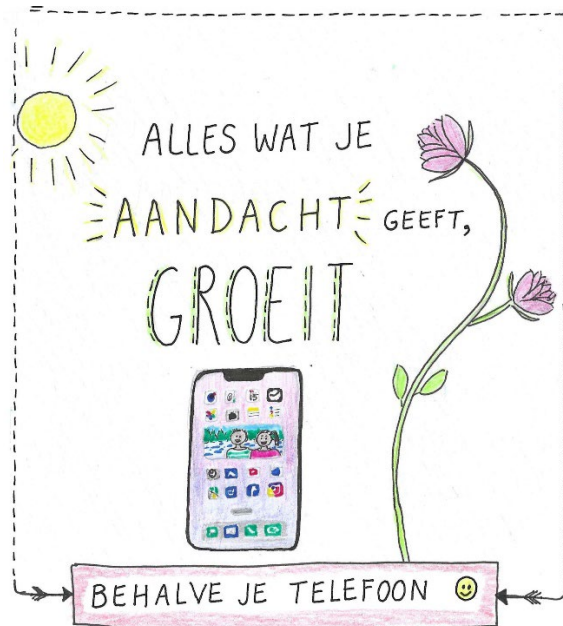 ALLES WAT JE
AANDACHT GEEFT,
GROEIT
BEHALVE JE TELEFOON